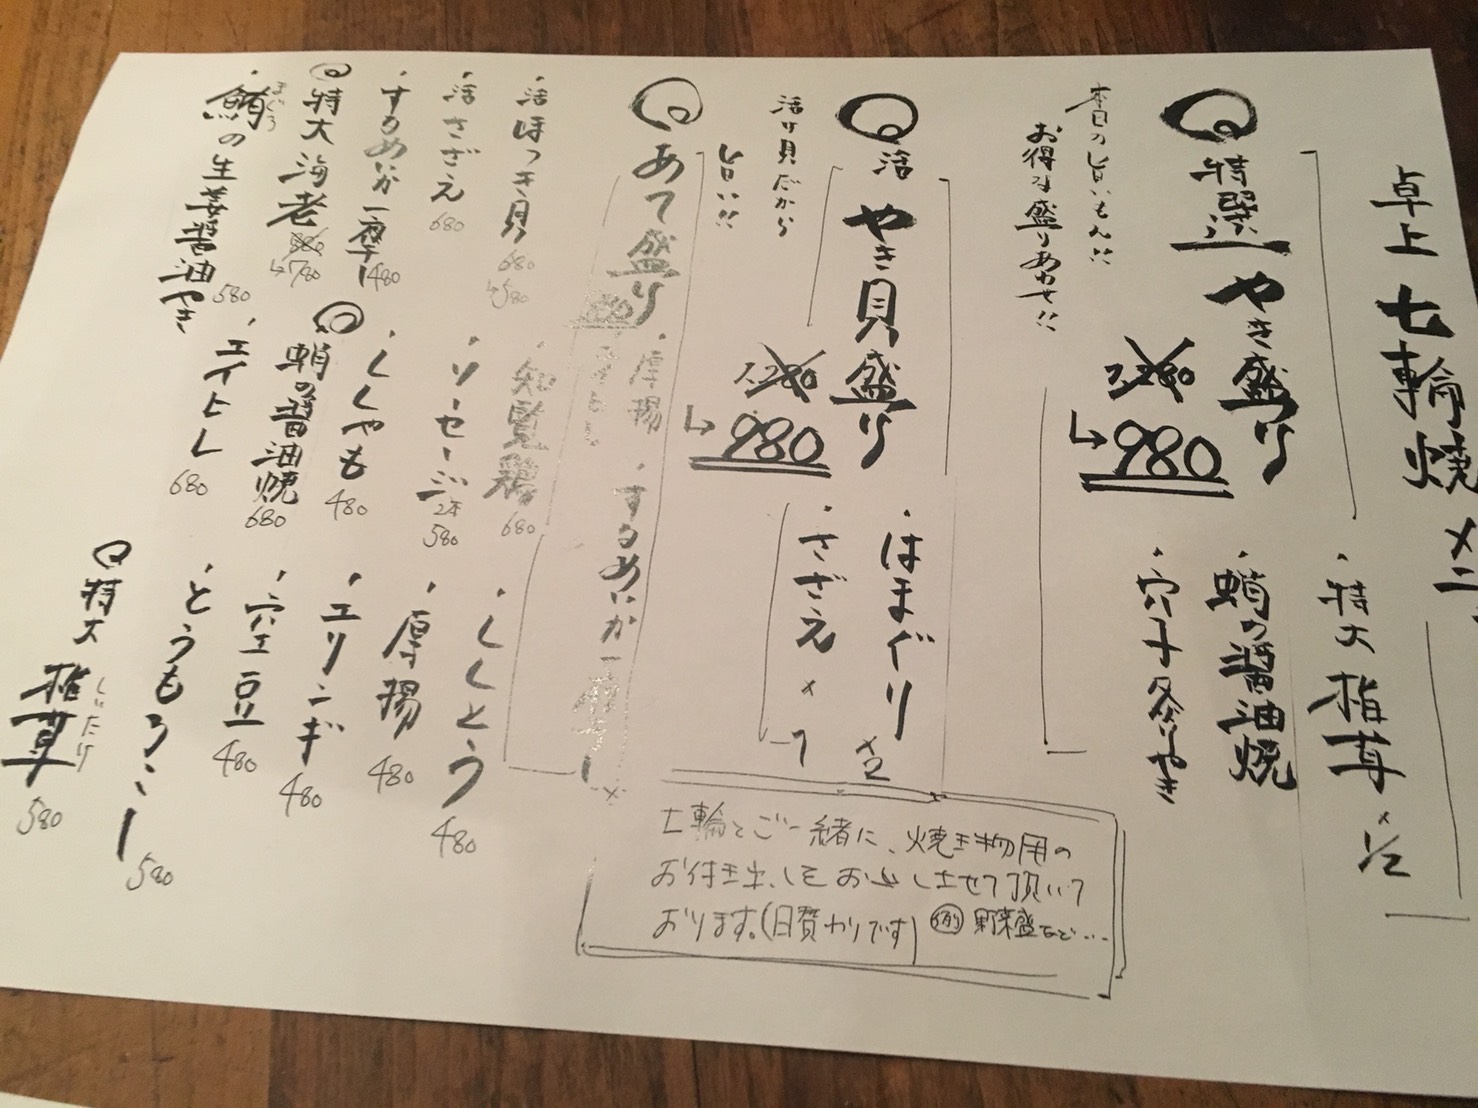 卓上 七輪焼 メニ
特選 やき盛り
1,280
→980
本日の旨いもん!!
お得な盛りあわせ!!
・特大 椎茸 ×1/2
・蛸の醤油焼
・穴子炙りやき
活 やき貝盛り
1,280
→980
活け貝だから
旨い!!
・はまぐり ×2
・さざえ ×1
あて盛り
・厚揚
・するめいか一夜干し
七輪とご一緒に、焼き物用の
お付き出しをお出しさせて頂いて
おります。(日替わりです) 例 野菜盛など…
・活ほっき貝 680
→580
・活さざえ 680
・するめいか一夜干し 480
特大 海老 880
→780
・鮪の生姜醤油やき 580
まぐろ
・知覧鶏 680
・ソーセージ 2本 580
・ししゃも 480
蛸の醤油焼 680
・エイヒレ 680
・ししとう 480
・厚揚 480
・エリンギ 480
・空豆 480
・とうもろこし 580
特大 椎茸 580
しいたけ